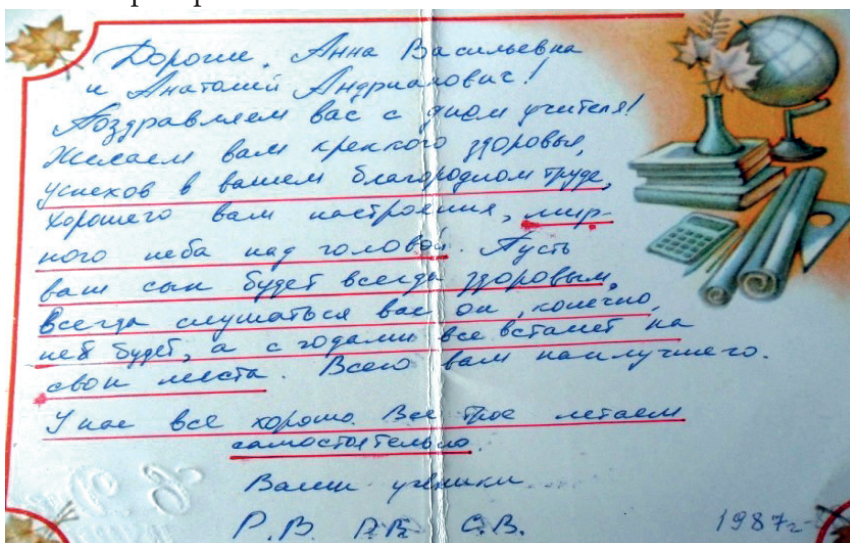 Дорогие, Анна Васильевна
и Анатолий Андрианович!
Поздравляем вас с днем учителя!
Желаем вам крепкого здоровья,
успехов в вашем благородном труде,
хорошего вам настроения, мир-
ного неба над головой. Пусть
ваш сын будет всегда здоровым.
Всегда слушаться вас он, конечно,
не будет, а с годами все встанет на
свои места. Всего вам наилучшего.
У нас все хорошо. Все трое летаем
самостоятельно.
Ваши ученики
Р.В. С.В. 1987г